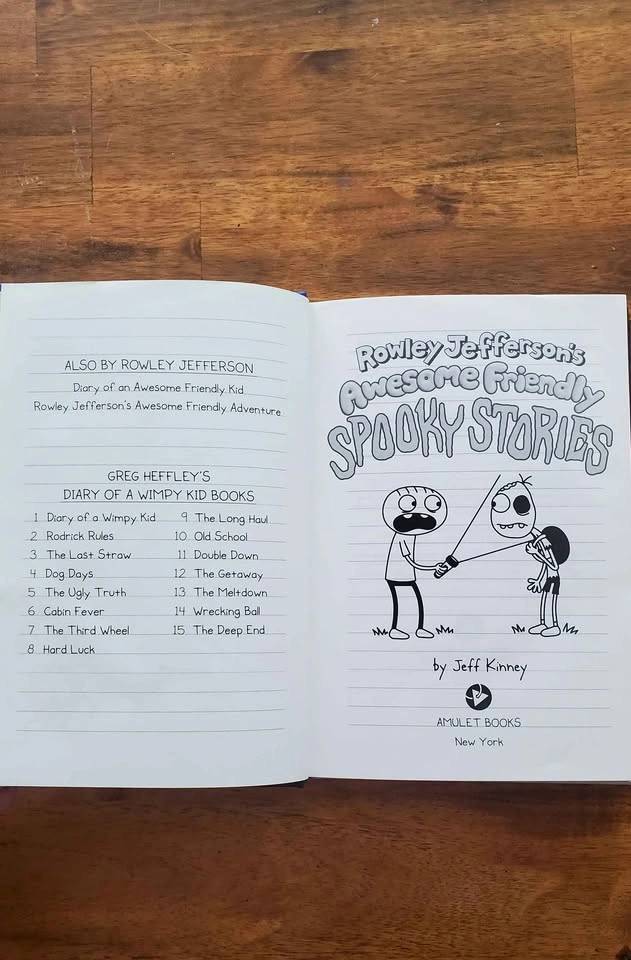 ALSO BY ROWLEY JEFFERSON
Diary of an Awesome Friendly Kid
Rowley Jefferson's Awesome Friendly Adventure
GREG HEFFLEY'S
DIARY OF A WIMPY KID BOOKS
1 Diary of a Wimpy Kid
2 Rodrick Rules
3 The Last Straw
4 Dog Days
5 The Ugly Truth
6 Cabin Fever
7 The Third Wheel
8 Hard Luck
9 The Long Haul
10 Old School
11 Double Down
12 The Getaway
13 The Meltdown
14 Wrecking Ball
15 The Deep End
Rowley Jefferson's
Awesome Friendly
SPOOKY STORIES
by Jeff Kinney
AMULET BOOKS
New York